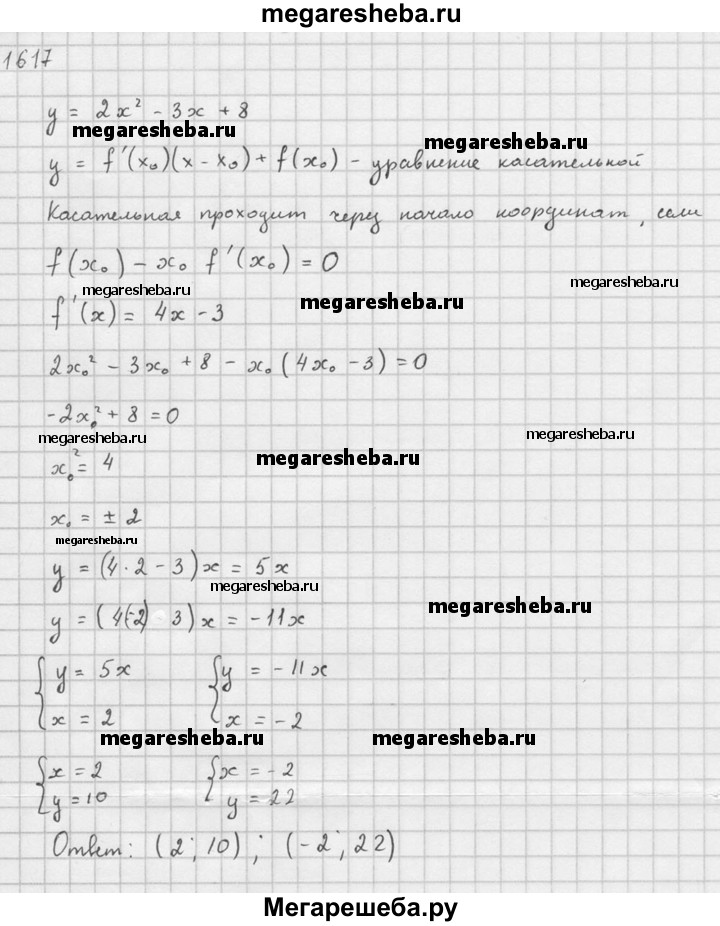 megaresheba.ru
1617
y = 2x² - 3x + 8
megaresheba.ru
megaresheba.ru
y = f'(x₀)(x - x₀) + f(x₀) - уравнение касательной
Касательная проходит через начало координат, если
f(x₀) - x₀ f'(x₀) = 0
megaresheba.ru
megaresheba.ru
megaresheba.ru
f'(x) = 4x - 3
2x₀² - 3x₀ + 8 - x₀(4x₀ - 3) = 0
-2x₀² + 8 = 0
megaresheba.ru
megaresheba.ru
megaresheba.ru
x₀² = 4
x₀ = ± 2
megaresheba.ru
y = (4·2 - 3)x = 5x
megaresheba.ru
megaresheba.ru
y = (4(-2) 3)x = -11x
{ y = 5x { y = -11x
x = 2 x = -2
megaresheba.ru
megaresheba.ru
{ x = 2 { x = -2
y = 10 y = 22
Ответ: (2; 10); (-2; 22)
Мегарешеба.ру